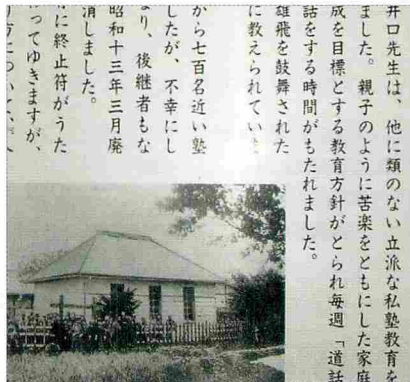 井口先生は、他に類のない立派な私塾教育を
ました。親子のように苦楽をともにした家庭
成を目標とする教育方針がとられ毎週「道話
話をする時間がもたれました。
雄飛を鼓舞された
に教えられていま
から七百名近い塾
したが、不幸にし
なり、後継者もな
昭和十三年三月廃
消しました。
に終止符がうた
わってゆきますが、
方について、